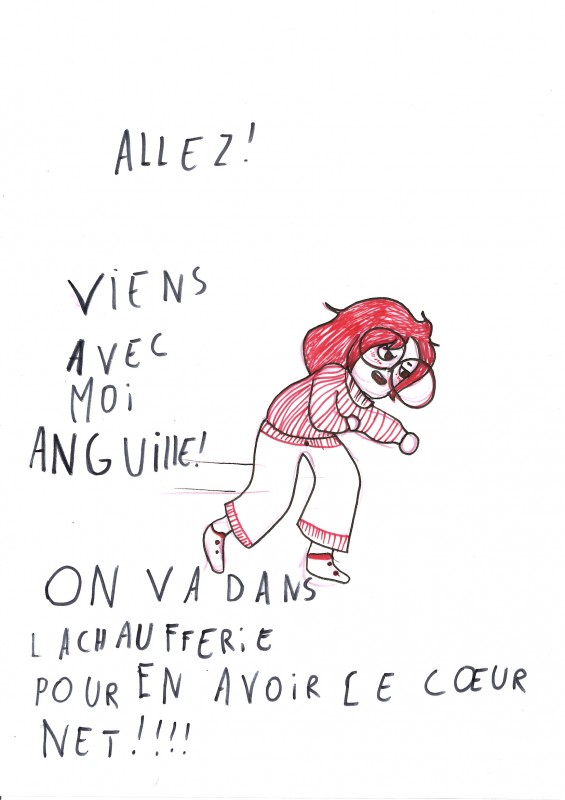 ALLEZ!
ViENS
AVEC
MOi
ANGUillE!
ON VA DANS
LACHAUFFERiE
POUR EN AVOiR LE CŒUR
NET!!!!